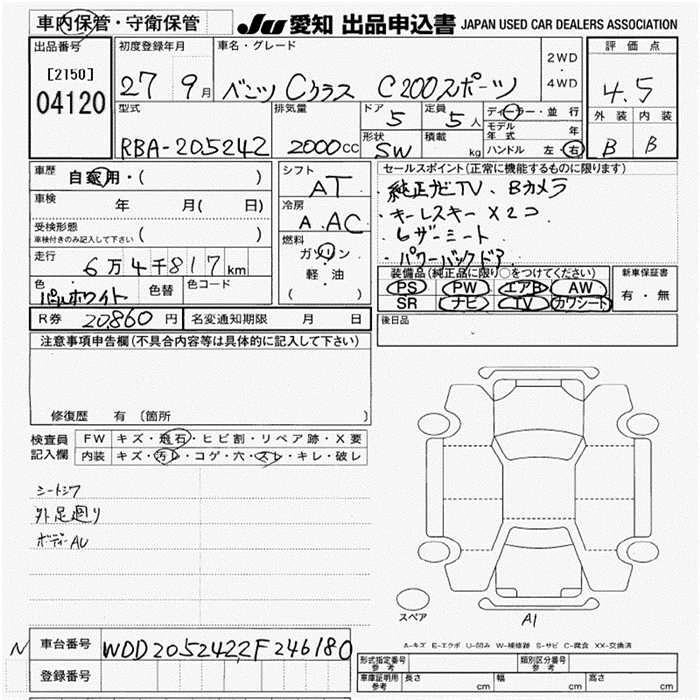 車内保管・守衛保管
JU 愛知 出品申込書 JAPAN USED CAR DEALERS ASSOCIATION
出品番号
[2150]
04120
初度登録年月
27 9月
車名・グレード
ベンツ Cクラス C200スポーツ
2WD
・
4WD
評価点
4.5
外装 内装
B B
型式
RBA-205242
排気量
2000cc
ドア 5
定員 5人
形状 SW
積載 kg
ディーラー・並行
モデル年式 年
ハンドル 左・右
車歴
自家用・( )
車検
年 月( 日)
受検形態
車検付きのみ記入して下さい ( )
走行
6万4千817km
色
パールホワイト
色替
色コード
シフト
AT
冷房
A.AC
燃料
ガソリン
軽・油
( )
セールスポイント(正常に機能するものに限ります)
・純正ナビTV、Bカメラ
・キーレスキー×2コ
・レザーシート
・パワーバックドア
装備品(純正品に限り○をつけてください)
PS PW エアB AW
SR ナビ TV カワシート
新車保証書
有・無
R券 20,860円
名変通知期限 月 日
後日品
注意事項申告欄(不具合内容等は具体的に記入して下さい)
修復歴 有 (箇所 )
検査員
記入欄
FW キズ・飛石・ヒビ割・リペア跡・X要
内装 キズ・汚レ・コゲ・穴・スレ・キレ・破レ
シートシワ
外足廻り
ボディーAU
スペア
A1
A-キズ E-エクボ U-凹み W-補修跡 S-サビ C-腐食 XX-交換済
N
車台番号 WDD2052422F246180
登録番号
形式指定番号
参考
類別区分番号
参考
車庫証明用
参考
長さ cm 幅 cm 高さ cm